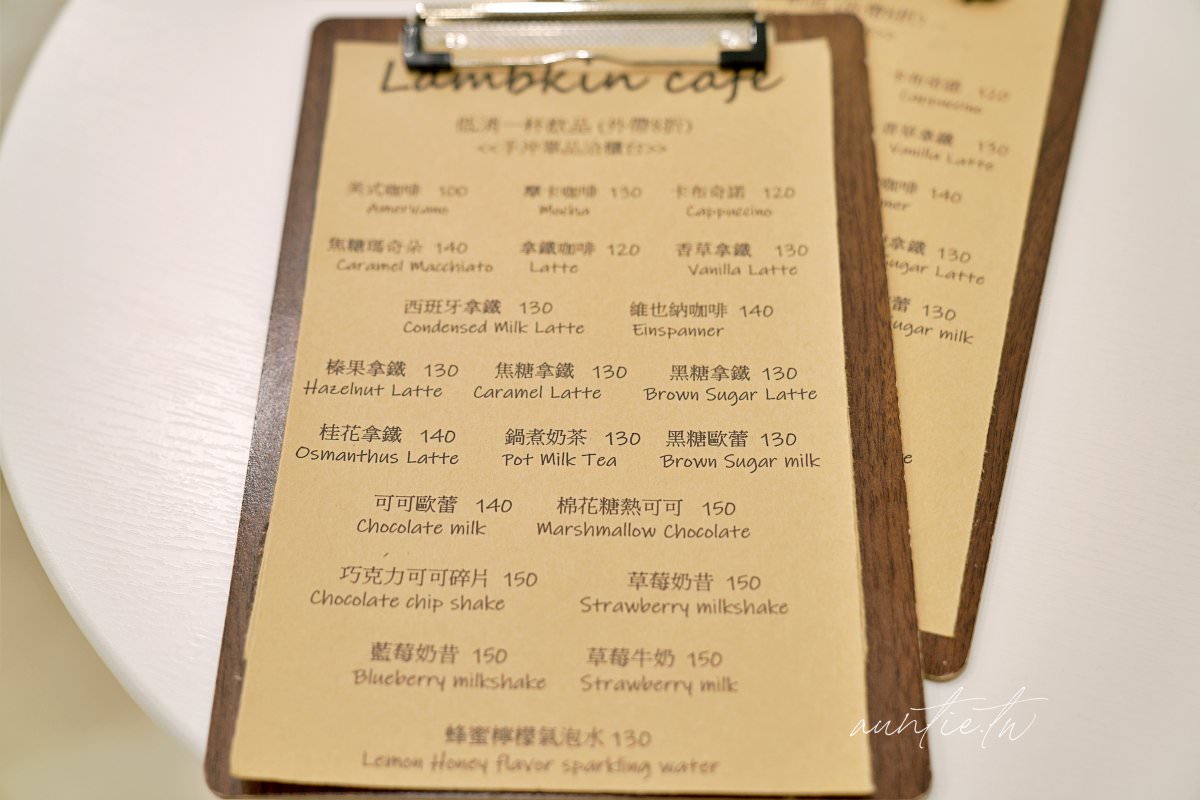 Lambkin cafe
低消一杯飲品 (外帶8折)
<<手沖單品洽櫃台>>
美式咖啡 100 摩卡咖啡 130 卡布奇諾 120
Americano Mocha Cappuccino
焦糖瑪奇朵 140 拿鐵咖啡 120 香草拿鐵 130
Caramel Macchiato Latte Vanilla Latte
西班牙拿鐵 130 維也納咖啡 140
Condensed Milk Latte Einspanner
榛果拿鐵 130 焦糖拿鐵 130 黑糖拿鐵 130
Hazelnut Latte Caramel Latte Brown Sugar Latte
桂花拿鐵 140 鍋煮奶茶 130 黑糖歐蕾 130
Osmanthus Latte Pot Milk Tea Brown Sugar milk
可可歐蕾 140 棉花糖熱可可 150
Chocolate milk Marshmallow Chocolate
巧克力可可碎片 150 草莓奶昔 150
Chocolate chip shake Strawberry milkshake
藍莓奶昔 150 草莓牛奶 150
Blueberry milkshake Strawberry milk
蜂蜜檸檬氣泡水 130
Lemon Honey flavor sparkling water
卡布奇諾 120
Cappuccino
香草拿鐵 130
Vanilla Latte
咖啡 140
拿鐵 130
Sugar Latte
蕾 130
Sugar milk
auntie.tw